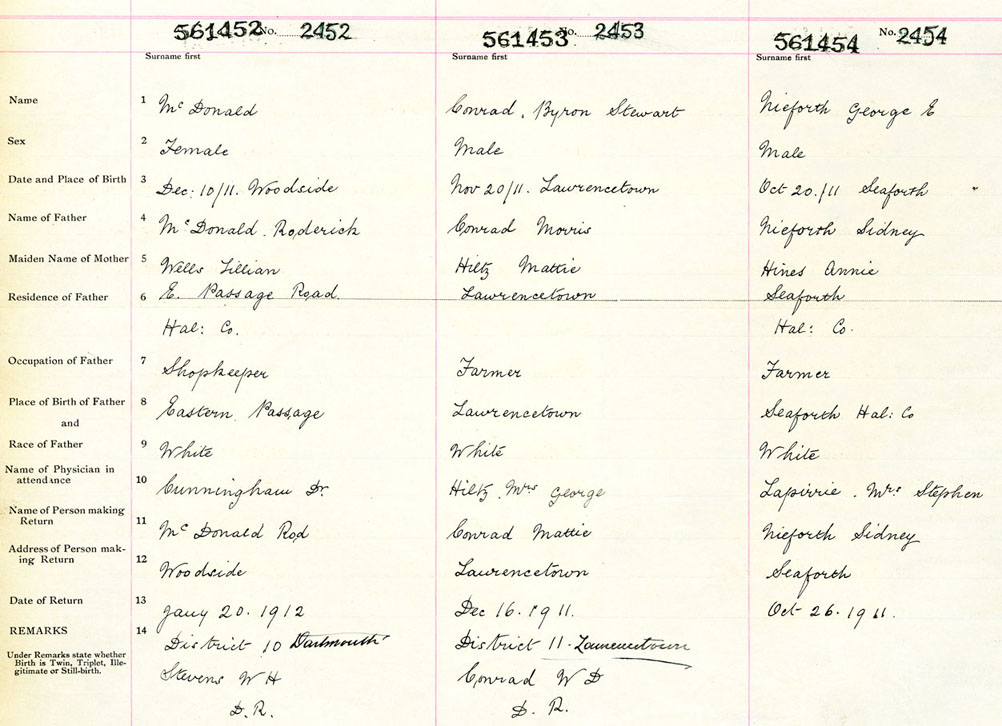 561452 No. 2452 561453 No. 2453 561454 No. 2454
Surname first Surname first Surname first
Name 1 Mc Donald Conrad, Byron Stewart Nieforth George E
Sex 2 Female Male Male
Date and Place of Birth 3 Dec. 10/11. Woodside Nov 20/11. Lawrencetown Oct 20./11 Seaforth "
Name of Father 4 Mc Donald. Roderick Conrad Morris Nieforth Sidney
Maiden Name of Mother 5 Wells Lillian Hiltz Mattie Hines Annie
Residence of Father 6 E. Passage Road. Lawrencetown Seaforth
Hal: Co. Hal: Co.
Occupation of Father 7 Shopkeeper Farmer Farmer
Place of Birth of Father 8 Eastern Passage Lawrencetown Seaforth Hal: Co
and
Race of Father 9 White White White
Name of Physician in
attendance 10 Cunningham Dr. Hiltz, Mrs George Lapierrie. Mrs Stephen
Name of Person making
Return 11 Mc Donald Rod Conrad Mattie Nieforth Sidney
Address of Person mak-
ing Return 12 Woodside Lawrencetown Seaforth
Date of Return 13 Jany 20. 1912 Dec 16. 1911. Oct 26. 1911.
REMARKS 14 District 10 Dartmouth District 11 - Lawrencetown
Under Remarks state whether
Birth is Twin, Triplet, Ille-
gitimate or Still-birth.
Stevens W H Conrad W D
D. R. D. R.